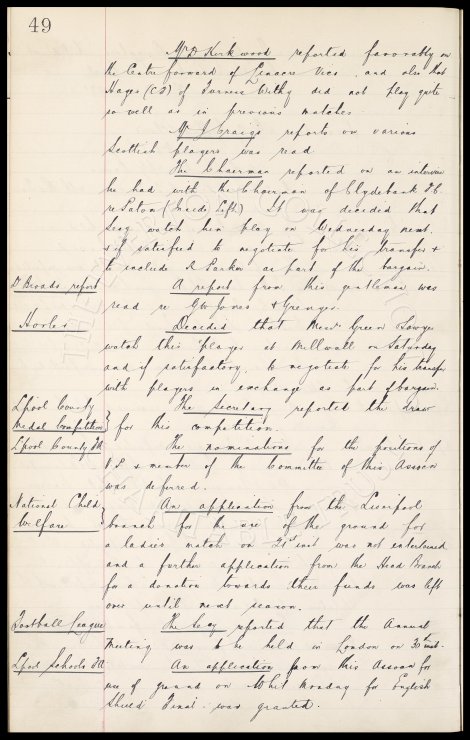 49
Mr D Kirkwood reported favorably on
the Centre forward of Linacre Vics, and also that
Hayes (C.F) of Furness Withy did not play quite
so well as in previous matches.
Mr J Craigs reports on various
Scottish players was read.
The Chairman reported on an interview
he had with the Chairman of Clydebank F.C
re Paton (Inside Left). It was decided that
Secy watch him play on Wednesday next.
& if satisfied to negotiate for his transfer &
to include A Parker as part of the bargain.
Dr Broads report
A report from this gentleman was
read re Gw Jones & Grenyer.
Decided that Messrs Green Sawyer
watch this player at Millwall on Saturday
and if satisfactory, to negotiate for his transfer
with players in exchange as part of bargain.
Lpool County
Medal Competition
The Secretary reported the draw
for this competition.
Lpool County FA
The nominations for the positions of
V.P. & member of the Committee of this Assocn
was deferred.
National Child
Welfare
An application from the Liverpool
branch for the use of the ground for
a ladies match on 21st inst was not entertained
and a further application from the Head Branch
for a donation towards their funds was left
over until next season.
Football League
The Secy reported that the Annual
Meeting was to be held in London on 30th inst.
Lpool Schools FA
An application from this Assocn for
use of ground on Whit Monday for English
Shield Final was granted.